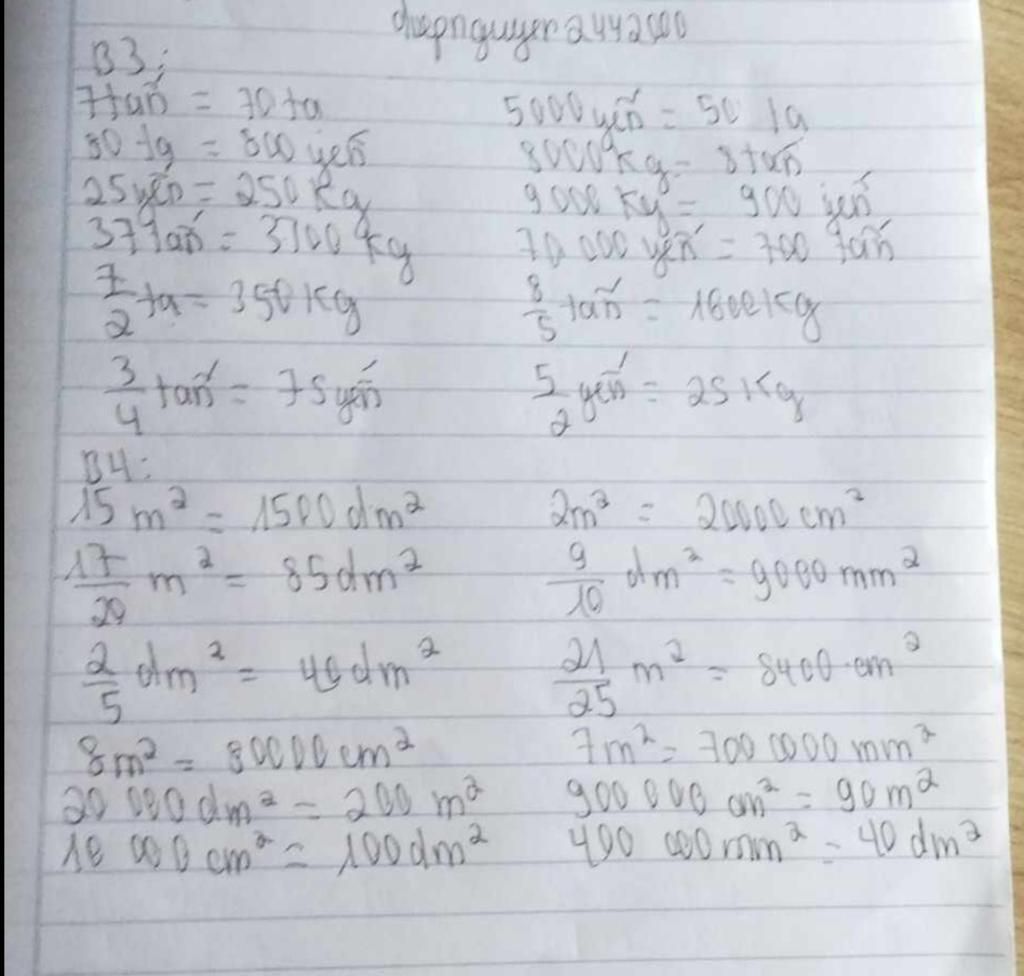 diepnguyen2442000
B3:
7 tấn = 70 tạ 5000 yến = 50 tạ
80 tạ = 800 yến 8000 kg = 8 tấn
25 yến = 250 Kg 9000 Kg = 900 yến
37 tấn = 3700 kg 70 000 yến = 700 tấn
7/2 tạ = 350 Kg 8/5 tấn = 1600 Kg
3/4 tấn = 75 yến 5/2 yến = 25 Kg
B4:
15 m² = 1500 dm² 2m² = 20000 cm²
17/20 m² = 85 dm² 9/10 dm² = 9000 mm²
2/5 dm² = 40 dm² 21/25 m² = 8400 cm²
8m² = 80000 cm² 7m² = 700 0000 mm²
20 000 dm² = 200 m² 900 000 cm² = 90 m²
10 000 cm² = 100 dm² 400 000 mm² = 40 dm²